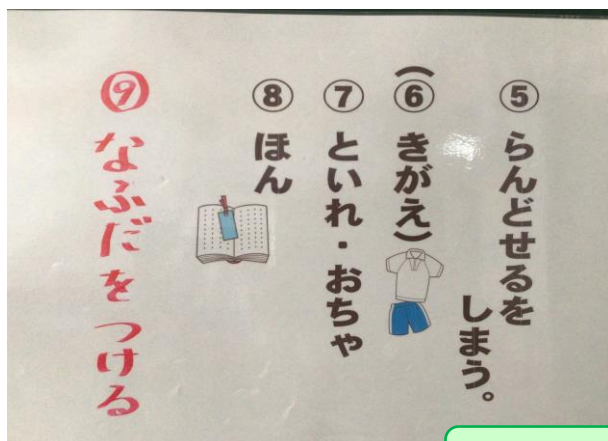 ⑤ らんどせるを
しまう。
(⑥ きがえ)
⑦ といれ・おちゃ
⑧ ほん
⑨ なふだをつける